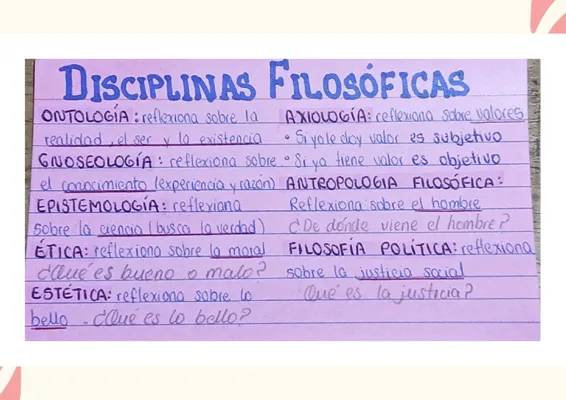 DISCIPLINAS FILOSÓFICAS
ONTOLOGÍA: reflexiona sobre la
realidad, el ser y la existencia
GNOSEOLOGÍA: reflexiona sobre
el conocimiento (experiencia y razón)
EPISTEMOLOGÍA: reflexiona
sobre la ciencia (busca la verdad)
ÉTICA: reflexiona sobre la moral
¿Qué es bueno o malo?
ESTÉTICA: reflexiona sobre lo
bello. ¿Qué es lo bello?
AXIOLOGÍA: reflexiona sobre valores
• Si yo le doy valor es subjetivo
• Si ya tiene valor es objetivo
ANTROPOLOGIA FILOSÓFICA:
Reflexiona sobre el hombre
¿De dónde viene el hombre?
FILOSOFÍA POLÍTICA: reflexiona
sobre la justicia social
Qué es la justicia?